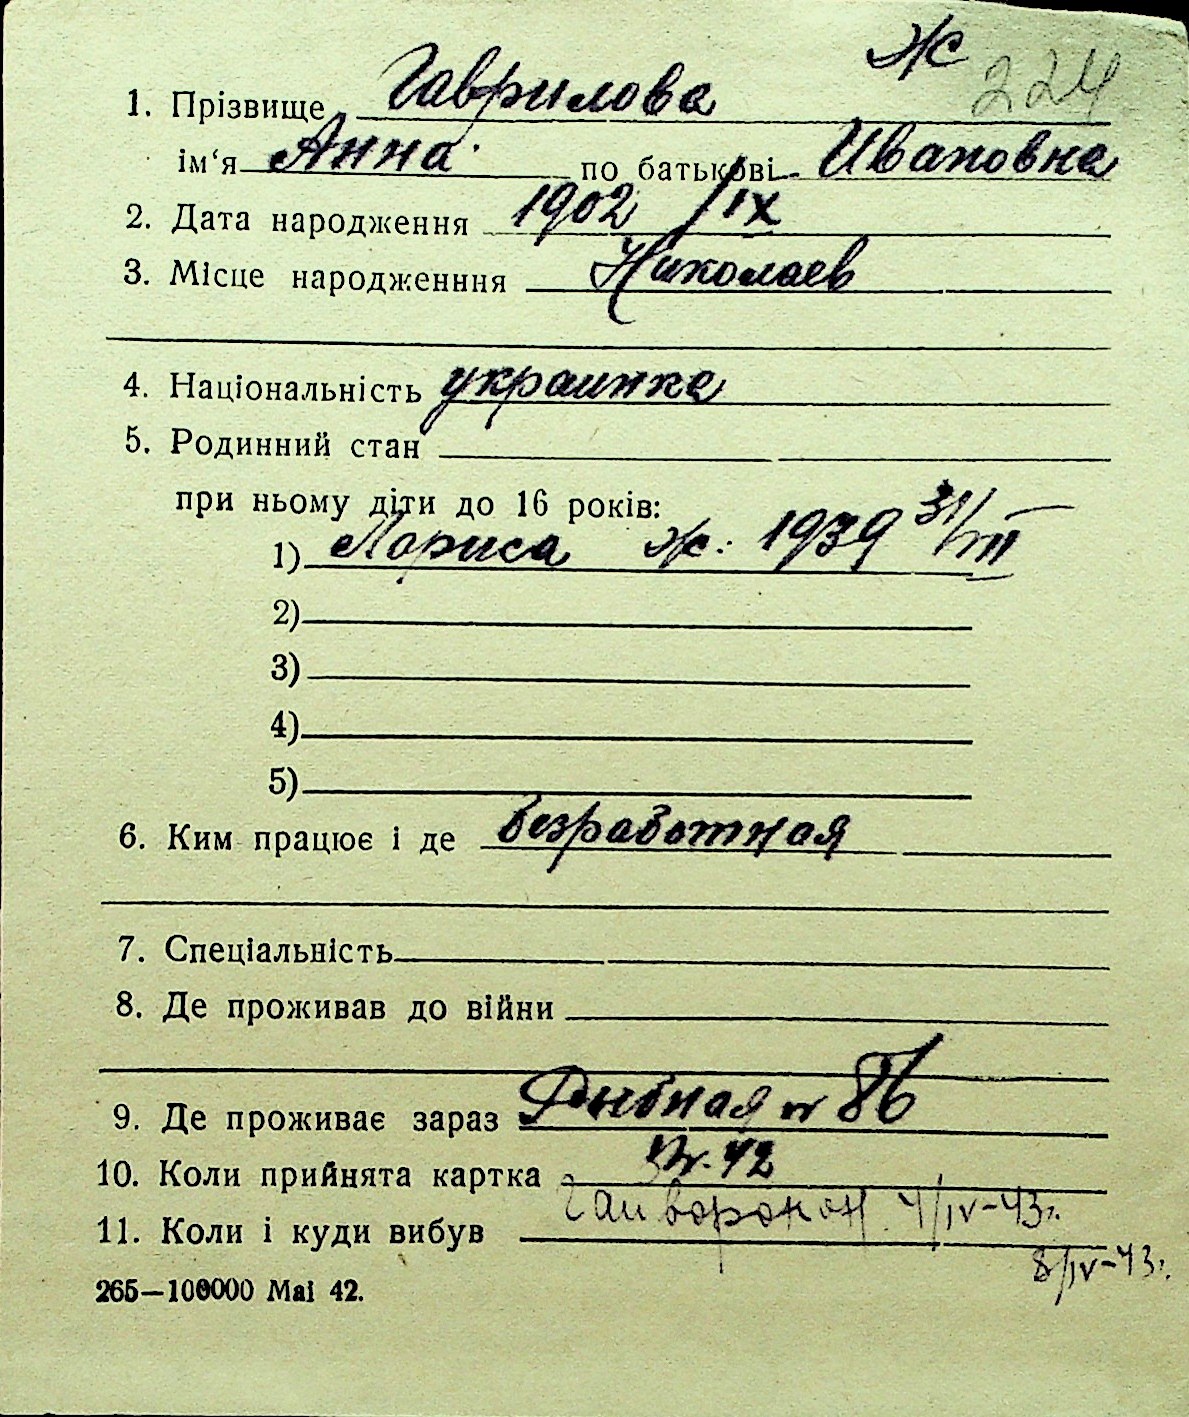 Ж 224
1. Прізвище Гаврилова
ім‘я Анна по батькові Ивановна
2. Дата народження 1902 /IX
3. Місце народженння Николаев
4. Національність украинка
5. Родинний стан
при ньому діти до 16 років:
1) Лариса Ж. 1939 31/III
2)
3)
4)
5)
6. Ким працює і де безработная
7. Спеціальність
8. Де проживав до війни
9. Де проживає зараз Рыбная № 86
10. Коли прийнята картка 42
11. Коли і куди вибув Гайворонон 4/IV-43г.
8/IV-43г.
265—100000 Маі 42.